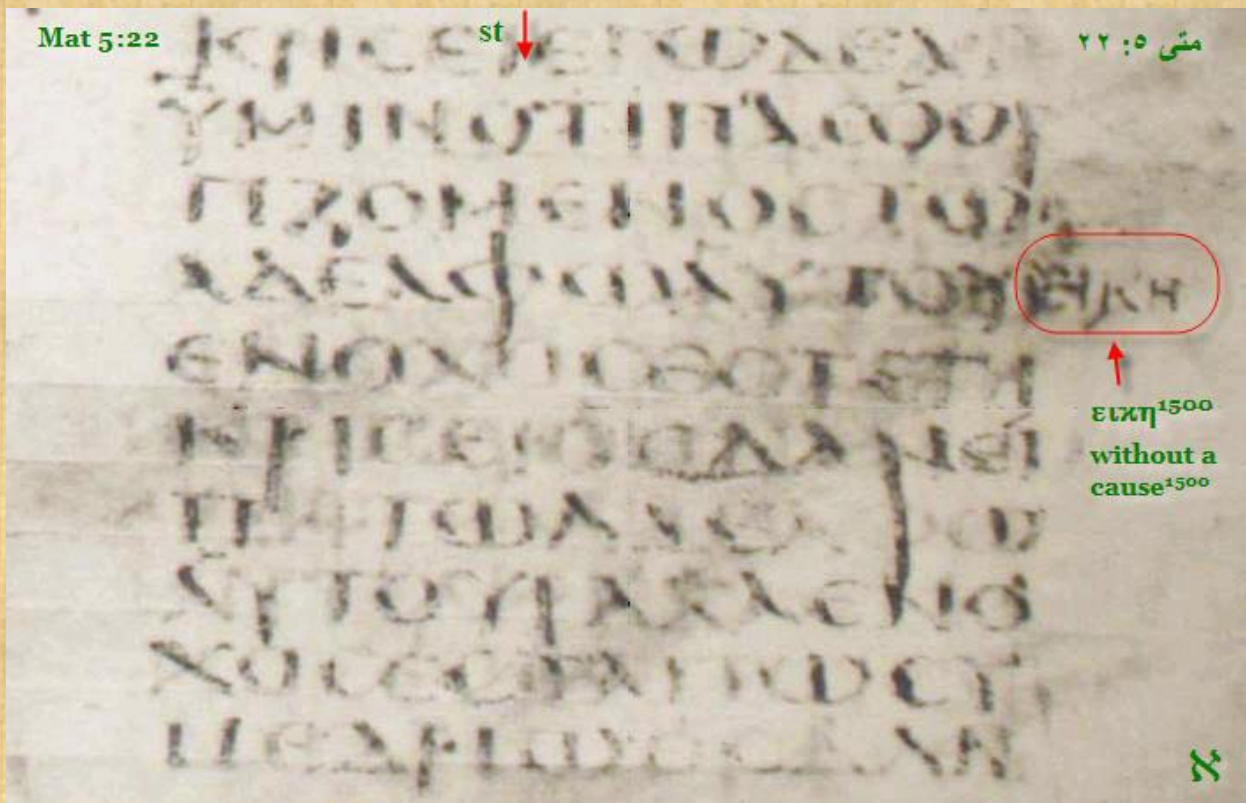 Mat 5:22
st
متى ٥: ٢٢
ΚΡΙCΕΙΕΓΩΔΕΛ
ΥΜΙΝΟΤΙΠΑCΟΟΡ
ΓΙΖΟΜΕΝΟCΤΩ
ΑΔΕΛΦΩΑΥΤΟΥ ΕΙΚΗ
ΕΝΟΧΟCΕCΤΑΙΤΗ
ΚΡΙCΕΙΟCΔΑΝΕΙ
ΠΗΤΩΑΔΕΛΦΩ
ΑΥΤΟΥΡΑΚΑΕΝΟ
ΧΟCΕCΤΑΙΤΩCΥ
ΝΕΔΡΙΩΟCΔΑΝ
εικη¹⁵⁰⁰
without a
cause¹⁵⁰⁰
א